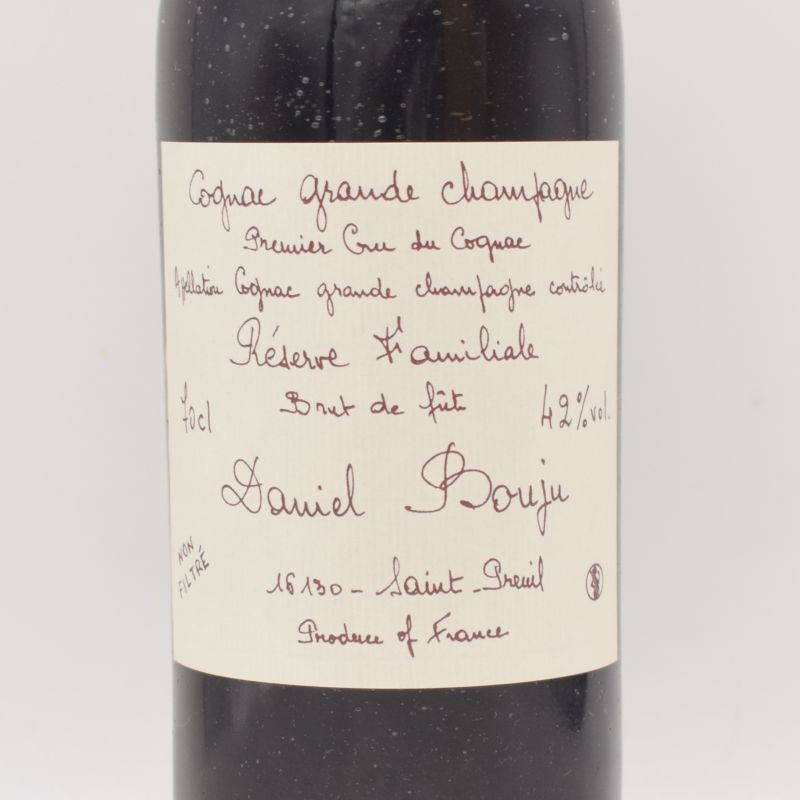 Cognac grande champagne
Premier Cru du Cognac
Appellation Cognac grande champagne contrôlée
Réserve Familiale
Brut de fût
70cl
42% vol.
Daniel Bouju
NON FILTRÉ
16130 - Saint-Preuil
Produce of France